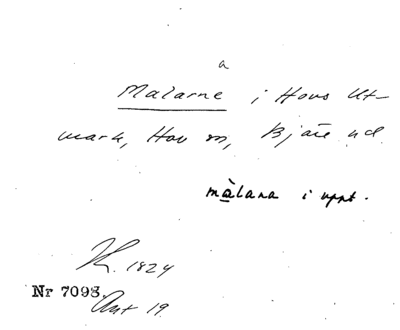 a
Malarne i Hovs Ut-
mark, Hov sn, Bjäre hd.
màlana i uppt.
K. 1824
Nr 7093. Ant 19.